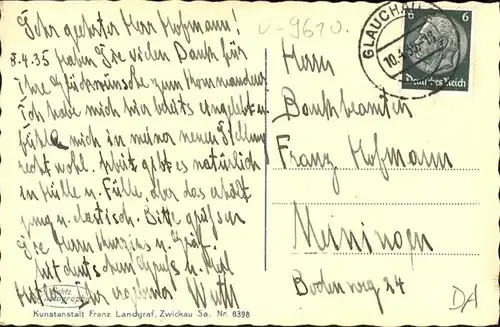 Sehr geehrter Herr Hofmann!
8.4.35 Haben Sie vielen Dank für
Ihre Glückwünsche zum Kommandeur
Ich habe mich hier bereits eingelebt u.
fühle mich in meiner neuen Stellung
recht wohl. Arbeit gibt es natürlich
in Hülle u. Fülle, aber das erhält
jung u. elastisch. Bitte grüßen
Sie Herrn u. Gräf.
Mit deutschem Gruß u.
Ihr ergebener
V-9610.
GLAUCHAU
6 6
Deutsches Reich
Herrn
Bankbeamten
Franz Hofmann
Meiningen
Bodenweg 24
DA
Kunstanstalt Franz Landgraf, Zwickau Sa. Nr. 8398